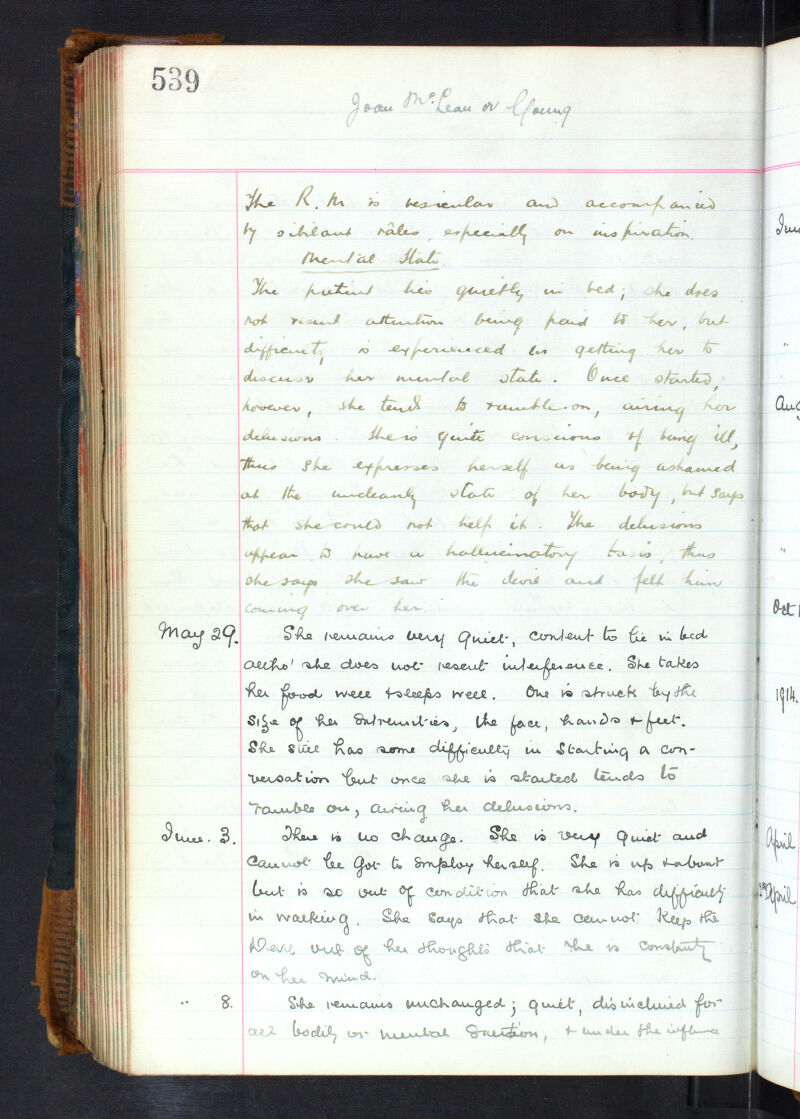 539
Joan McLean or Young
The R.M is vesicular and accompanied
by sibilant râles, especially on inspiration.
Mental State.
The patient lies quietly in bed; she does
not resent attention being paid to her, but
difficulty is experienced in getting her to
discuss her mental state. Once started,
however, she tends to ramble on, airing her
delusions. She is quite conscious of being ill,
thus she expresses herself as being ashamed
at the uncleanly state of her body, but says
that she could not help it. The delusions
appear to have a hallucinatory basis, thus
she says she saw the devil and felt him
coming over her.
May 29. She remains very quiet, content to lie in bed
altho' she does not resent interference. She takes
her food well & sleeps well. One is struck by the
size of her extremities, the face, hands & feet.
She still has some difficulty in starting a con-
versation but once she is started tends to
ramble on, airing her delusions.
June. 3. There is no change. She is very quiet and
cannot be got to employ herself. She is up & about
but is so out of condition that she has difficulty
in walking. She says that she cannot keep the
Devil out of her thoughts that he is constantly
on her mind.
" 8. She remains unchanged; quiet, disinclined for
all bodily or mental exertion, & under the influence
June
"
Aug
"
Oct 1
1914.
April
April